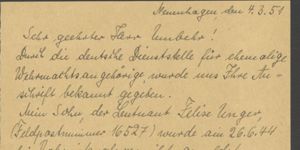 Neuenhagen den 4.3.51
Sehr geehrter Herr Umbehr!
Durch die deutsche Dienststelle für ehemalige
Wehrmachtsangehörige wurde uns Ihre An-
schrift bekannt gegeben.
Mein Sohn, der Leutnant Felix Unger,
(Feldpostnummer 16527) wurde am 26.6.44